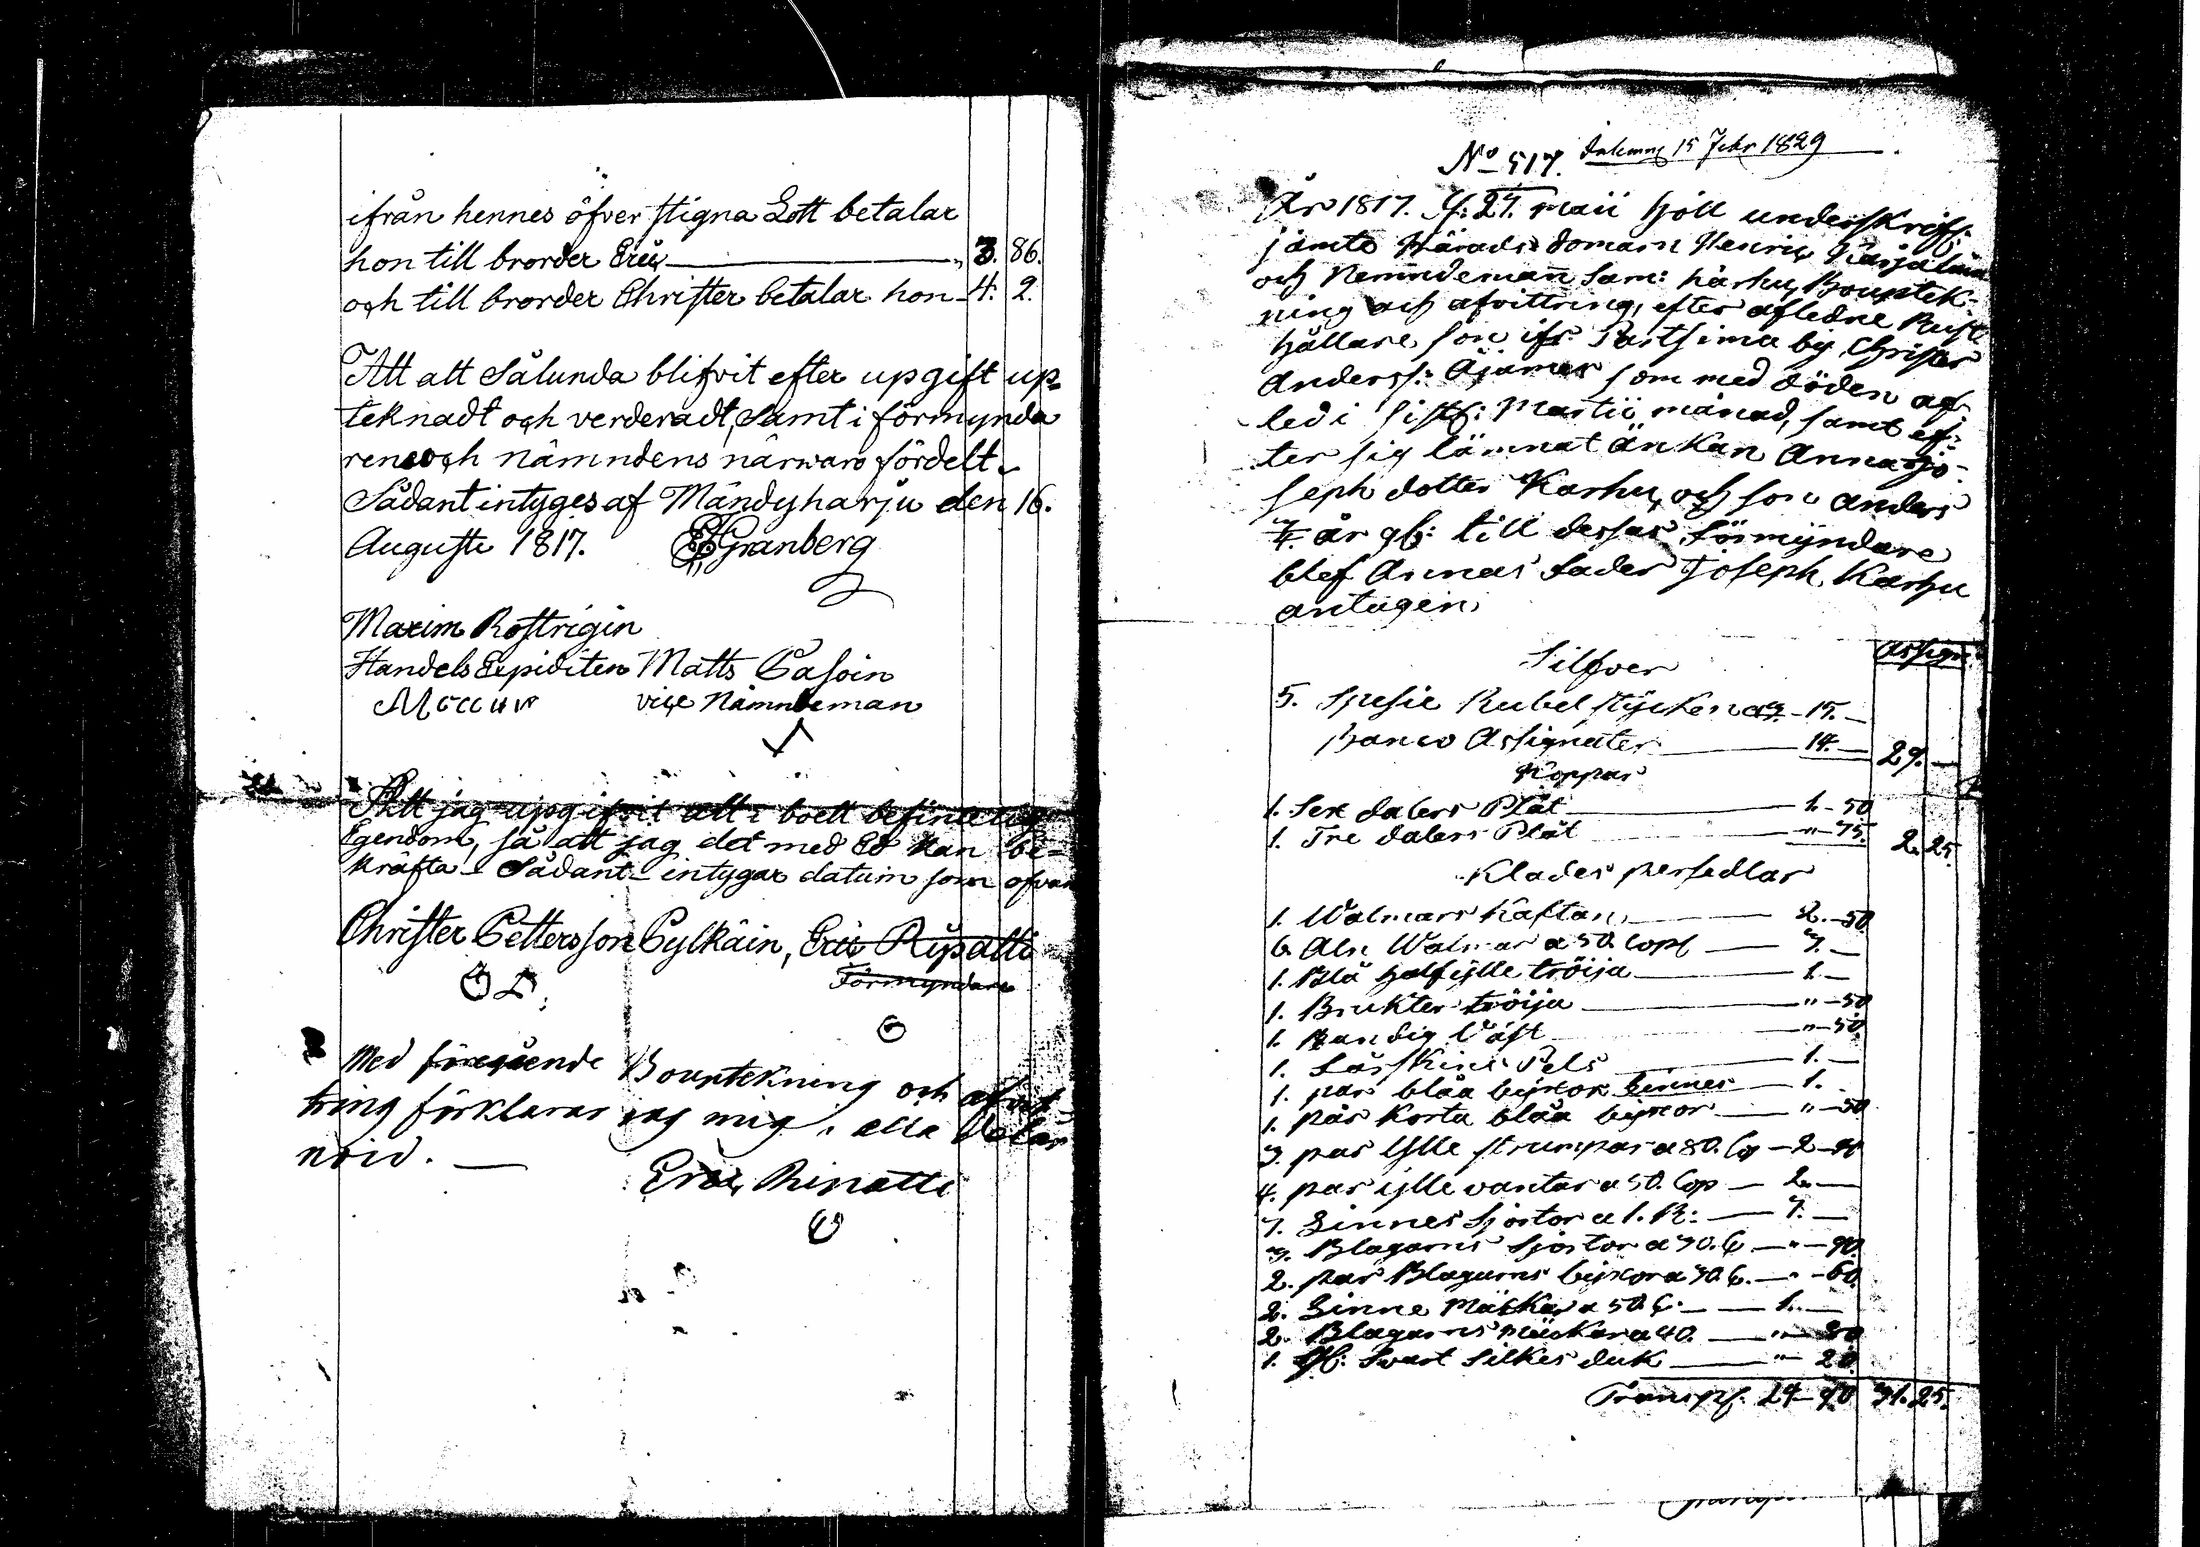 ifrån hennes öfverstigna Lott betalar
hon till brorder Eric — " 3. 86.
och till brorder Christer betalar hon - 4. 2.
Att alt Sålunda blifvit efter upgift up-
teknadt och verderadt, Samt i förmynda
rens och nämndens närwaro fördelt.
Sådant intyges af Mändyharju den 16.
Augusti 1817. Granberg
Maxim Rostrigin
Handels Expediten Matts Casoin
vice Nämndeman
Att jag upgifvit alt i boett befinteligt
Egendom, så att jag det med Ed kan be=
kräfta - Sådant intygar datum som ofvan
Christer Pettersson Pylkäin, Eric Ripatti
Förmyndare
Med föregående Bouptekning och afvit
tring förklarar jag mig i alla delar
nöid. —
Eric Ripatti
No 517. Inkomng 15 Febr 1829
År 1817. d: 27. maii höll underskrifs:
jämte Härads domarn Henric
och Nemndeman Sam: Karhu Bouptek-
ning och afvittring, efter afledne Rust
hållare son ifr: Partsima by Christer
Anderss: Äjämes som med döden af
led i sistl: Martii månad, samt ef=
ter sig lämnat änkan Anna Jo-
seph dotter Karhu, och son Anders
7. år gl: till dessas förmyndare
blef Annas fader Joseph Karhu
antagen.
Assign:
Silfver
5. Spesie Rubel stycken a 3. - 15. —
Banco Assignater — 14. — 29. —
Koppar
1. Sex dalers Plåt — 1. - 50
1. Tre dalers Plåt — " - 75. 2. 25
Klädes persedlar
1. Walmars kaftan — 2. - 50.
6. Aln Walmar a 50. Cop: — 3. —
1. Blå halfylle tröija — 1. —
1. Brukter tröija — " - 50
1. Randig Väst — " - 50.
1. Fårskins Pels — 1. —
1. par blåa byxor Linnes — 1. -
1. par korta blåa byxor — " - 50
3. par Ylle strumpor a 80. Cop - 2 - 40
4. par ylle vantar a 50. Cop — 2. —
7. Linnes Sjortor a 1. R: — 7. —
3. Blagarns Sjortor a 30. C. — " - 90.
2. par Blagarns byxor a 30. C. — " - 60.
2. Linne Mäskor a 50. C: — 1. —
2. Blagarns Mäskor a 40. — " - 80
1. gl: Swart Silkes duk — " - 20.
Transp: 24 - 90 31. 25.